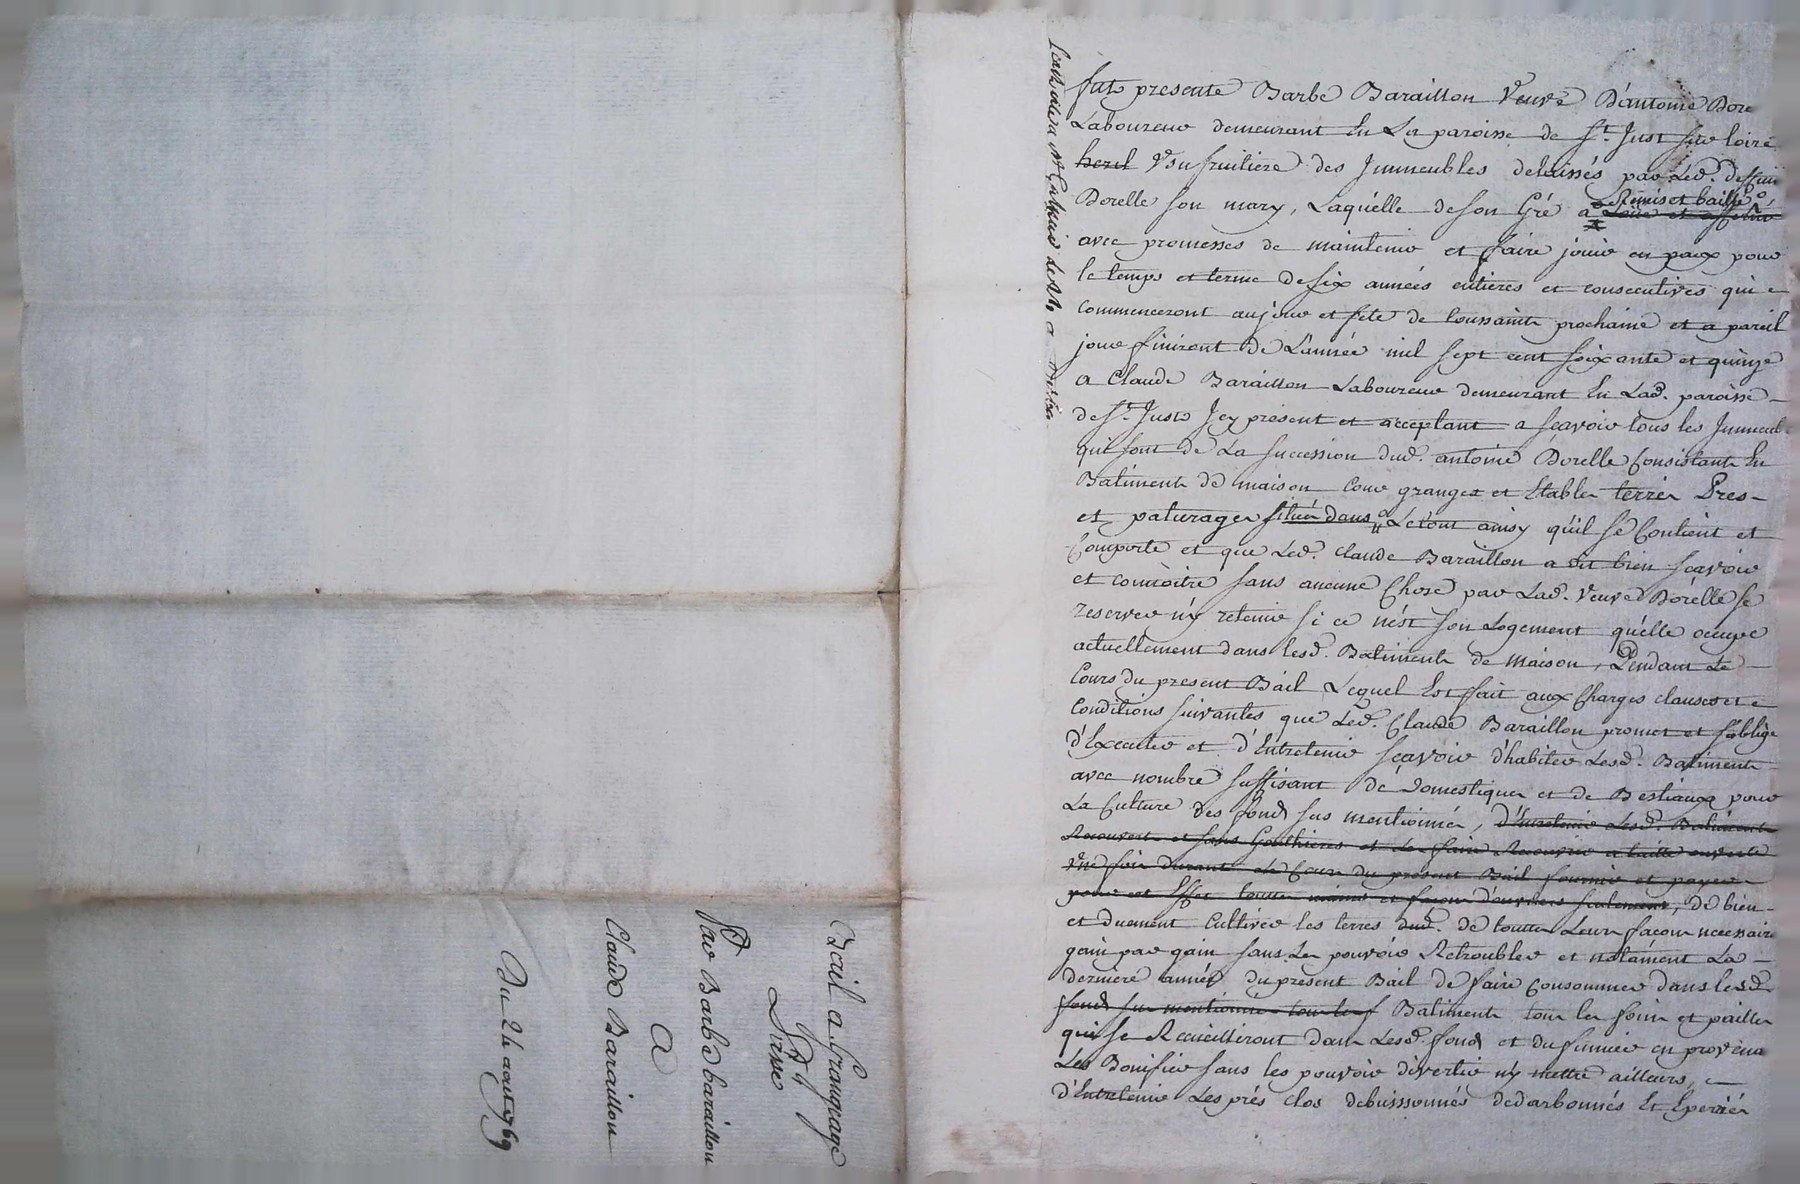 Bail a Grangeage
passé
par Barbe baraillon
A
Claude Baraillon
Du 24 aout 1769
fut presente Barbe Baraillon Veuve D'antoine Bore
Laboureur demeurant En La paroisse de St. Just sur loire
Usufruitiere des Immeubles delaissés par Led. deffun
Dorelle son mary, Laquelle de son Gré a Remis et baillé
avec promesses de maintenir et faire jouir en paix pour
le temps et terme de six années entieres et consecutives qui
commenceront au jour et fete de toussaint prochaine et a pareil
jour finiront de L'année mil sept cent soixante et quinze
a Claude Baraillon Laboureur demeurant En Lad. paroisse
de St. Just Icy present et acceptant a scavoir tous les Immeub
qui sont de La succession dud. antoine Dorelle Consistant En
Batiments de maison Cour granges et Etables terres Pres
et paturages situés dans Le tout ainsy qu'il se Contient et
Comporte et que Led. Claude Baraillon a dit bien scavoir
et connoitre sans aucune Chose par Lad. Veuve Dorelle se
reserver n'y retenir si ce n'est son Logement qu'elle occupe
actuellement dans lesd. Batiments de maison, Pendant Le
Cours du present Bail Lequel Est fait aux Charges clauses et
Conditions suivantes que Led. Claude Baraillon promet et s'oblige
d'Executer et d'Entretenir scavoir d'habiter Lesd. Batiments
avec nombre suffisant de Domestiques et de Bestiaux pour
La Culture des fonds sus mentionnés, d'Entretenir Lesd. Batiments
Recouvert et sans Gouttieres et Les faire Recouvrir a taille ouverte
Une fois durant Le Cours du present Bail fournir et payer
pour cet Effet toutes mains et façons d'ouvriers seulement, de bien
et duement Cultiver les terres dud. de toutes Leurs façons necessaire
gain par gain sans Les pouvoir Retroubler et notament La
derniere année du present Bail de faire Consommer dans lesd.
fonds sus mentionnés tous les Batiments tous les foins et pailles
qui se Recueilliront dans Lesd. fonds et du fumier en provena
Les Bonifier sans les pouvoir divertir n'y mettre ailleurs,
d'Entretenir Les prés clos debuissonnés